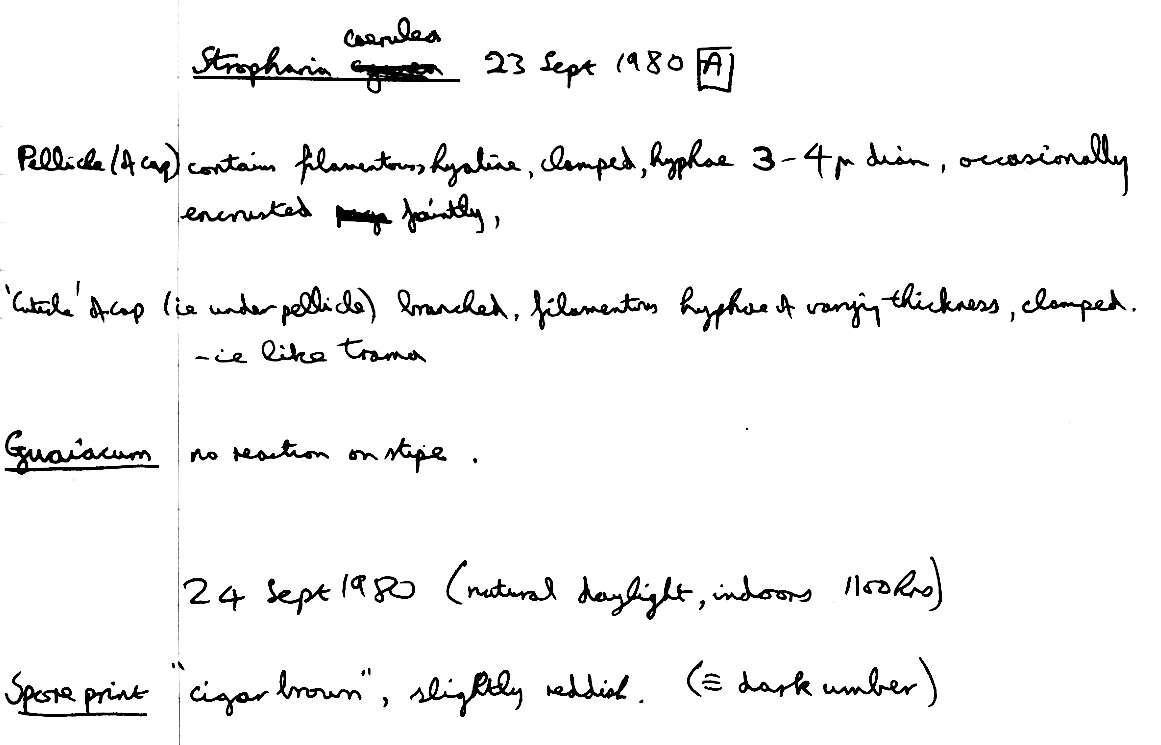 Stropharia caerulea 23 Sept 1980 A
Pellicle (of cap) contains filamentous, hyaline, clamped, hyphae 3-4μ diam, occasionally
encrusted faintly,
'Cuticle' of cap (ie under pellicle) branched, filamentous hyphae of varying thickness, clamped.
- ie like trama
Guaiacum no reaction on stipe.
24 Sept 1980 (natural daylight, indoors 1100 hrs)
Spore print "cigar brown", slightly reddish. (≡ dark umber)